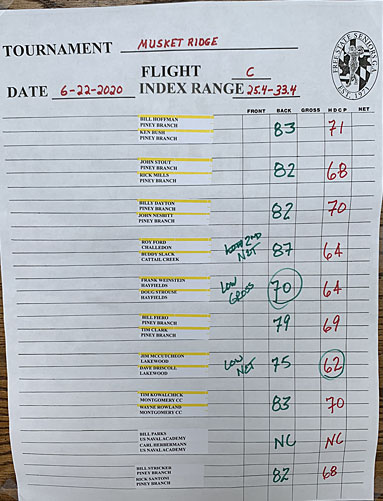 FREE STATE SENIORS G.
EST. 1971
TOURNAMENT MUSKET RIDGE
FLIGHT C
DATE 6-22-2020 INDEX RANGE 25.4-33.4
FRONT BACK GROSS HDCP NET
BILL HOFFMAN
PINEY BRANCH
KEN BUSH
PINEY BRANCH
83 71
JOHN STOUT
PINEY BRANCH
RICK MILLS
PINEY BRANCH
82 68
BILLY DAYTON
PINEY BRANCH
JOHN NESBITT
PINEY BRANCH
82 70
ROY FORD
CHALLEDON
BUDDY SLACK
CATTAIL CREEK
2ND NET 87 64
FRANK WEINSTEIN
HAYFIELDS
DOUG STROUSE
HAYFIELDS
LOW GROSS 70 64
BILL FIERO
PINEY BRANCH
TIM CLARK
PINEY BRANCH
79 69
JIM MCCUTCHEON
LAKEWOOD
DAVE DRISCOLL
LAKEWOOD
LOW NET 75 62
TIM KOWALCHICK
MONTGOMERY CC
WAYNE ROWLAND
MONTGOMERY CC
83 70
BILL PARKS
US NAVAL ACADEMY
CARL HERBERMANN
US NAVAL ACADEMY
NC NC
BILL STRICKER
PINEY BRANCH
RICK SANTONI
PINEY BRANCH
82 68